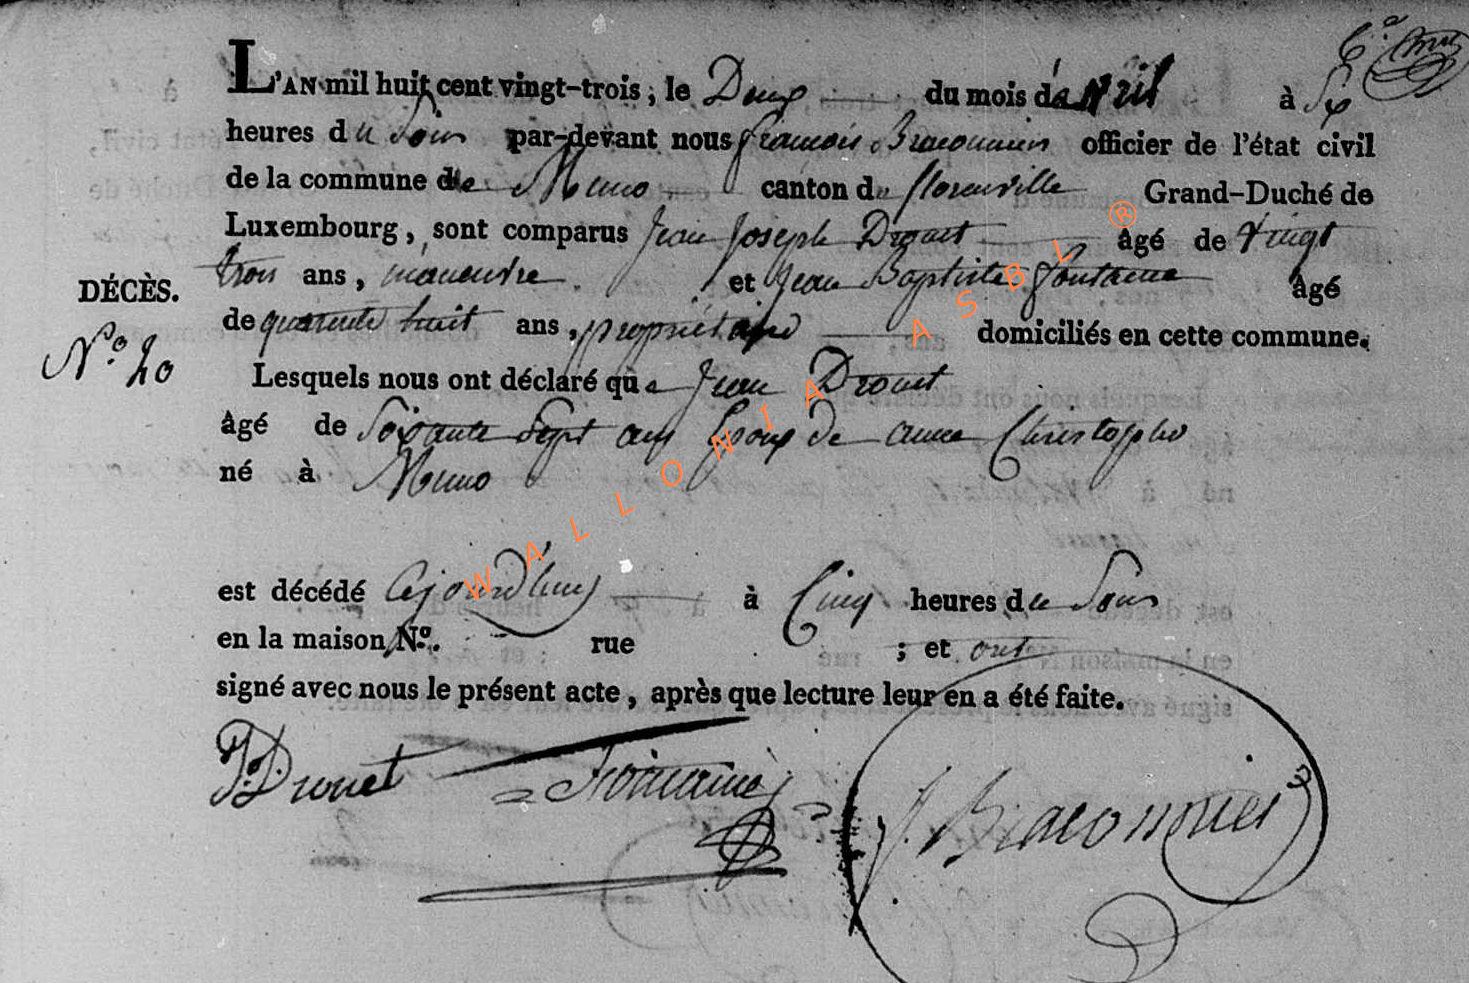 L'AN mil huit cent vingt-trois, le Deux du mois d'avril à Six
heures du Soir par-devant nous francois Braconnier officier de l'état civil
de la commune de Muno canton de florenville Grand-Duché de
Luxembourg, sont comparus Jean Joseph Drouet âgé de Vingt
trois ans, manœuvre et Jean Baptiste fontaine âgé
DÉCÈS.
de quarente huit ans, propriétaire domiciliés en cette commune.
N.º 20
Lesquels nous ont déclaré que Jean Drouet
âgé de Soixante Sept ans Epoux de anne Christophe
né à Muno
est décédé Cejourdhuy à Cinq heures du Soir
en la maison Nº. rue ; et ont
signé avec nous le présent acte, après que lecture leur en a été faite.
JJDrouet Fontaine f. Braconnier
WALLONIA ASBL ®